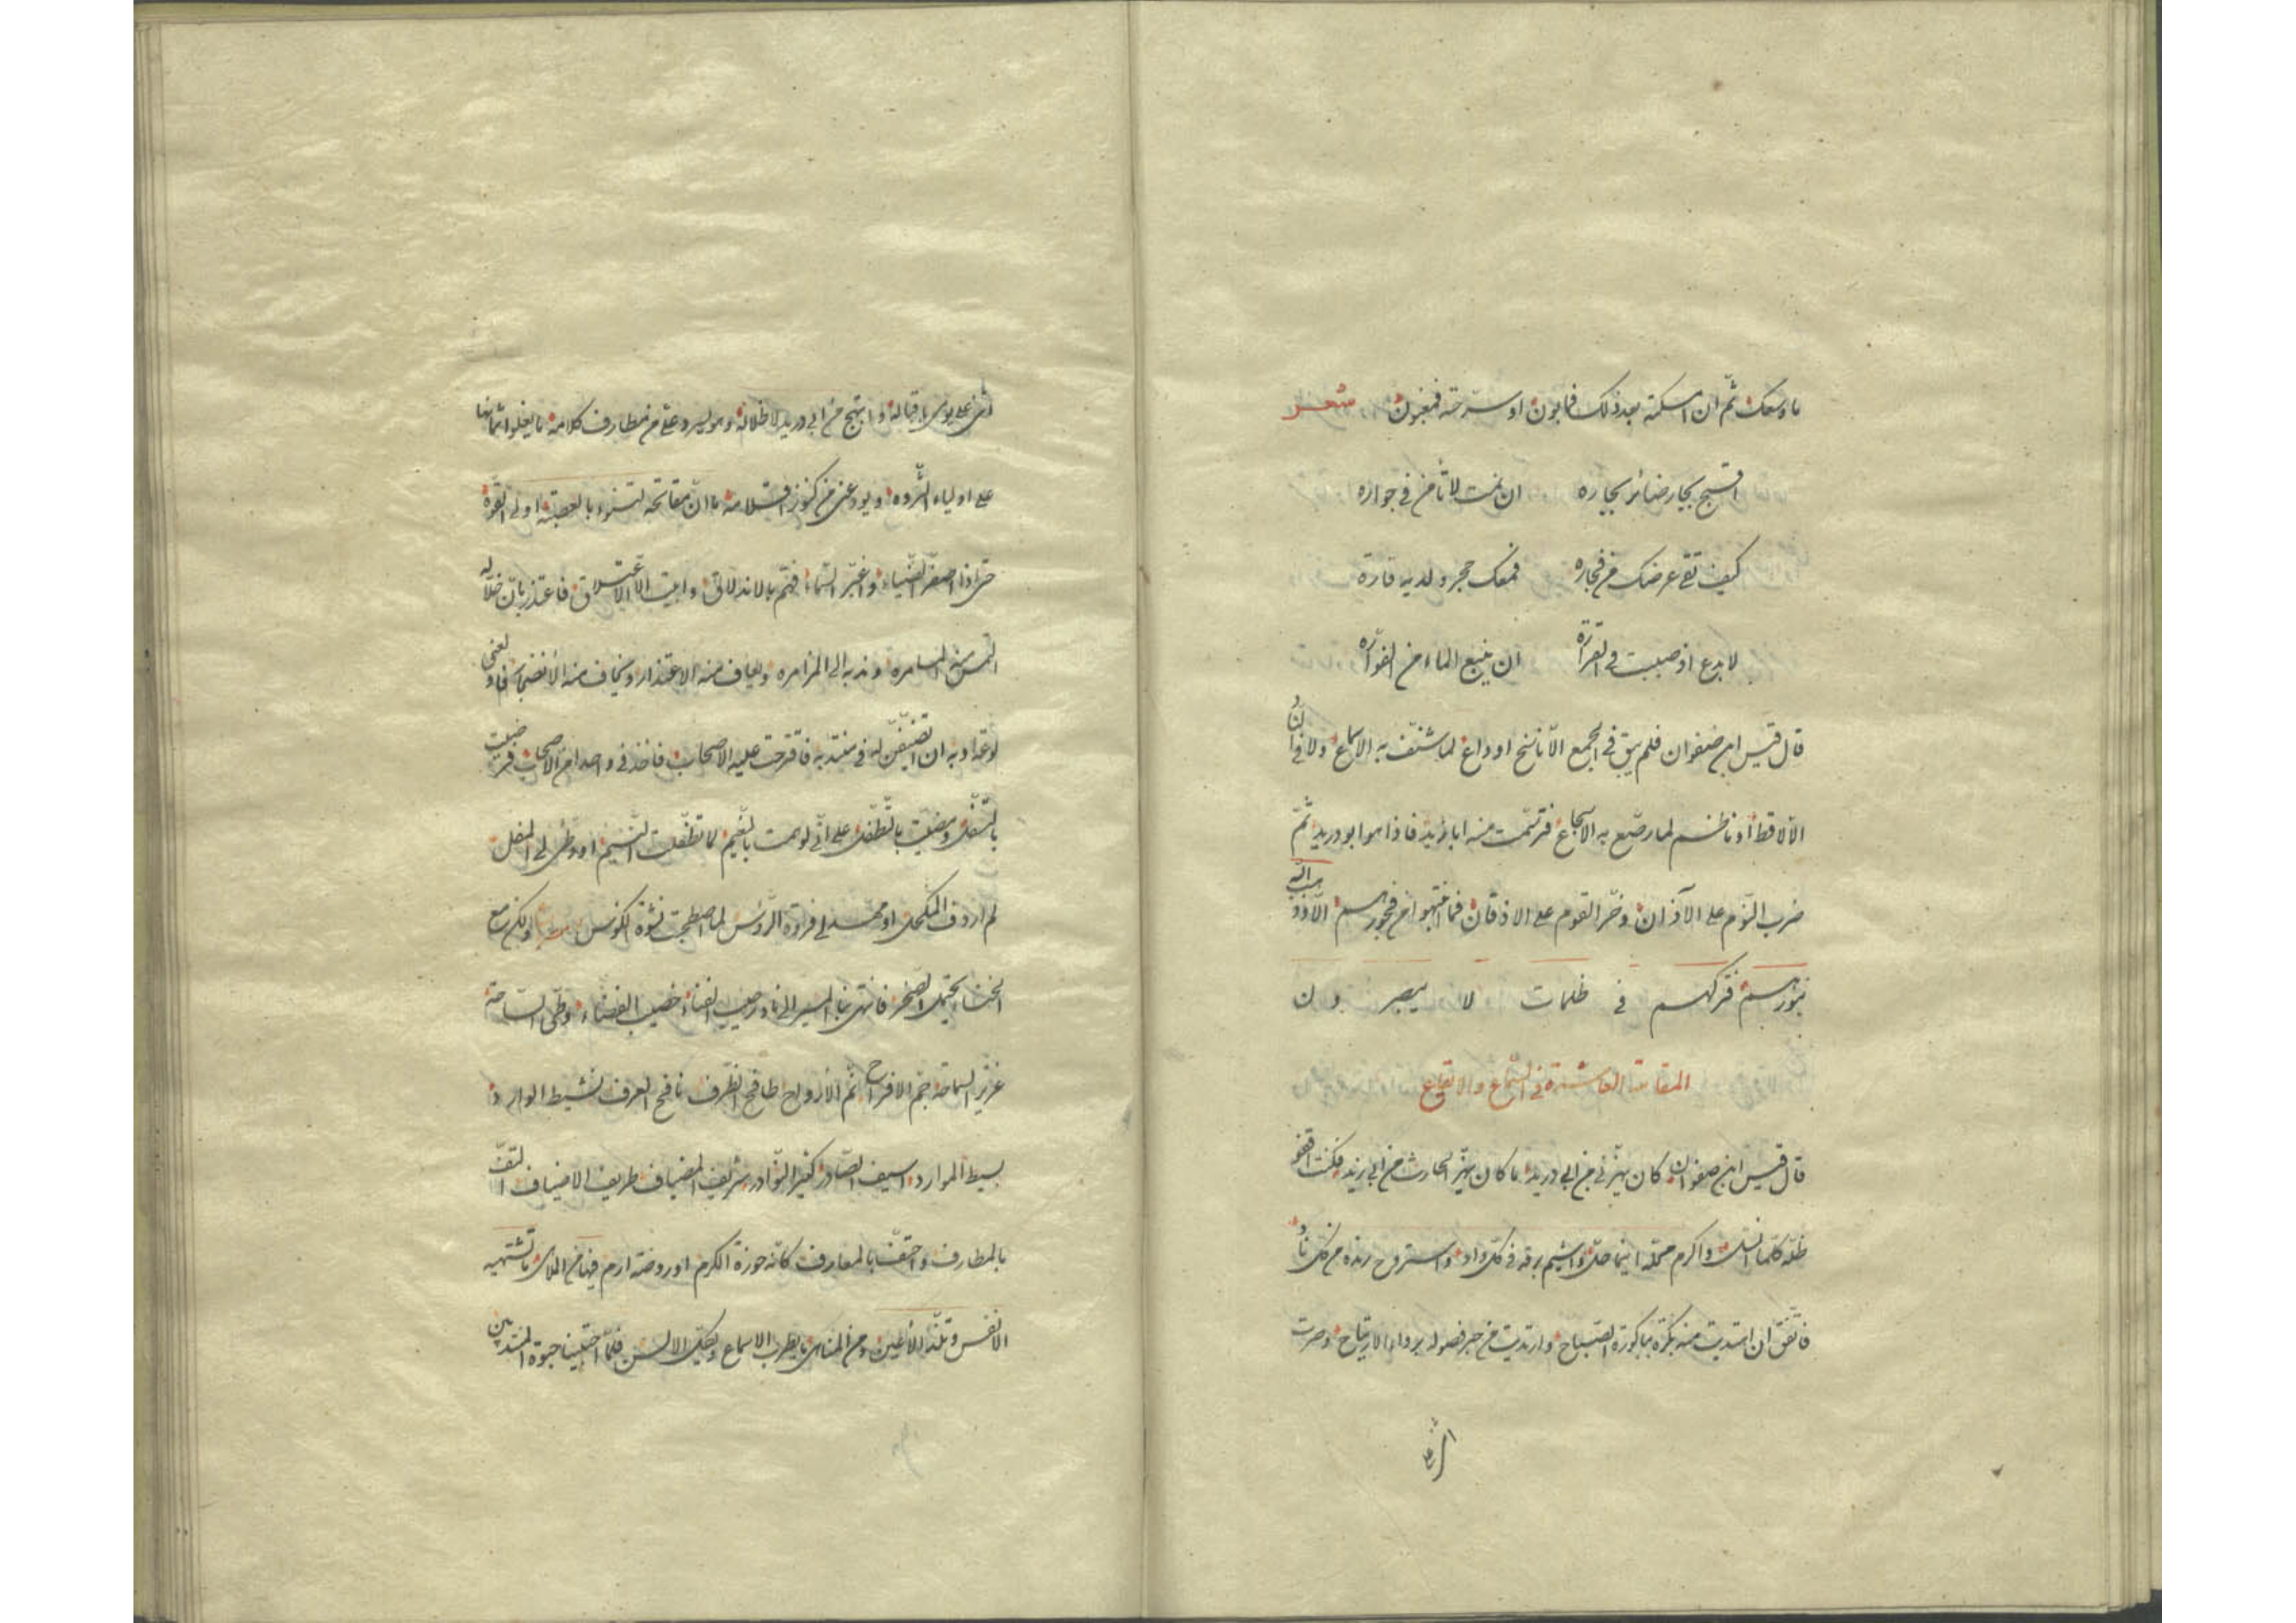 ما وسعك ثمّ ان امسكته بعد ذلك فمابون او سرّحته فمغبون شعر
اقبح بجار ضائر بجاره ان نمت لا تأمن في جواره
كيف تقي عرضك من فجاره فمعك حجر ولديه قاره
لا بدع اذ صببت في القراره ان ينبع الماء من الفوّاره
قال قيس ابن صفوان فلم يبق في المجمع الّا ناسخ او واع لما شنّف به الاسماع ولا في
الّا لاقط او ناظم لما رصّع به الاسجاع فترسّمت منه ابا زيد فاذا هو ابو دريد ثمّ
ضرب النوم على الآذان وخرّ القوم على الاذقان فما انتبهوا من فجورهم الّا وذهب اللّه
بنورهم فتركهم في ظلمات لا يبصرون
المقامة العاشرة في السّماع والايقاع
قال قيس ابن صفوان كان يهزّني من ابي دريد ما كان يهزّ الحارث من ابي زيد فكنت اقفو
ظلّه كلّما انسلّ واكرم محلّه اينما حلّ واشيم برقه في كلّ واد واستروح رنده من كلّ ناد
فاتّفق ان ابتديت منه بكرة بباكورة الصباح وارتديت من حبر فصوله برداء الارتياح وصرت
اثني على
اثني على يومي باقباله وابتهج من ابي دريد لاظلاله وهو يسرد علي من مطارف كلامه ما يغلو اثمانها
على اولياء الثّروه ويودعني من كنوز اقلامه ما انّ مفاتحه لتنوء بالعصبة اولي القوّة
حتّى اذا اصفرّ الضّياء واغبرّ السّماء فهمّ بالاندلاق وابيت الّا الاعتلاق فاعتذر بانّ خلّا له
التمس منه المسامره وندبه الى المزامره ويعاف منه الاعتذار ويخاف منه الانفضاض فاولعني
لوعة ادبه ان اتضيّفنّ له في منتدبه فاقترحت عليه الاصحاب فاخذني واحدا من الاصحاب فرضيت
بالتسفّل ومضيت بالتطفّل على انّي لو سمت بالغيم لما تطفّلت النّسيم او وطئ لي المفل
لم اردف المكحل او مهّد لي فروة الرّؤس لما اصطحبت نشوة الكؤس ولكن مع
الخنساء يحتمل الصّخر فانتهى بنا المسير الى ناد رحيب الفناء خصيب الفضاء وطئ السّاحة
غزير السماحة جمّ الافراح ثمّ الارواح طافح الظرف نافح العرف نشيط الوارد
بسيط الموارد اسيف الصّادر كثير النّوادر شريف المضياف ظريف الاضياف التفّ
بالمطارف واحتفّ بالمعارف كانّه حوزة الكرم او روضة ارم فيها من الملاهي ما تشتهيه
الانفس وتلذّ الاعين ومن المناهي ما يطرب الاسماع ويكلّ الالسن فلمّا احتبينا حبوة المنتدين